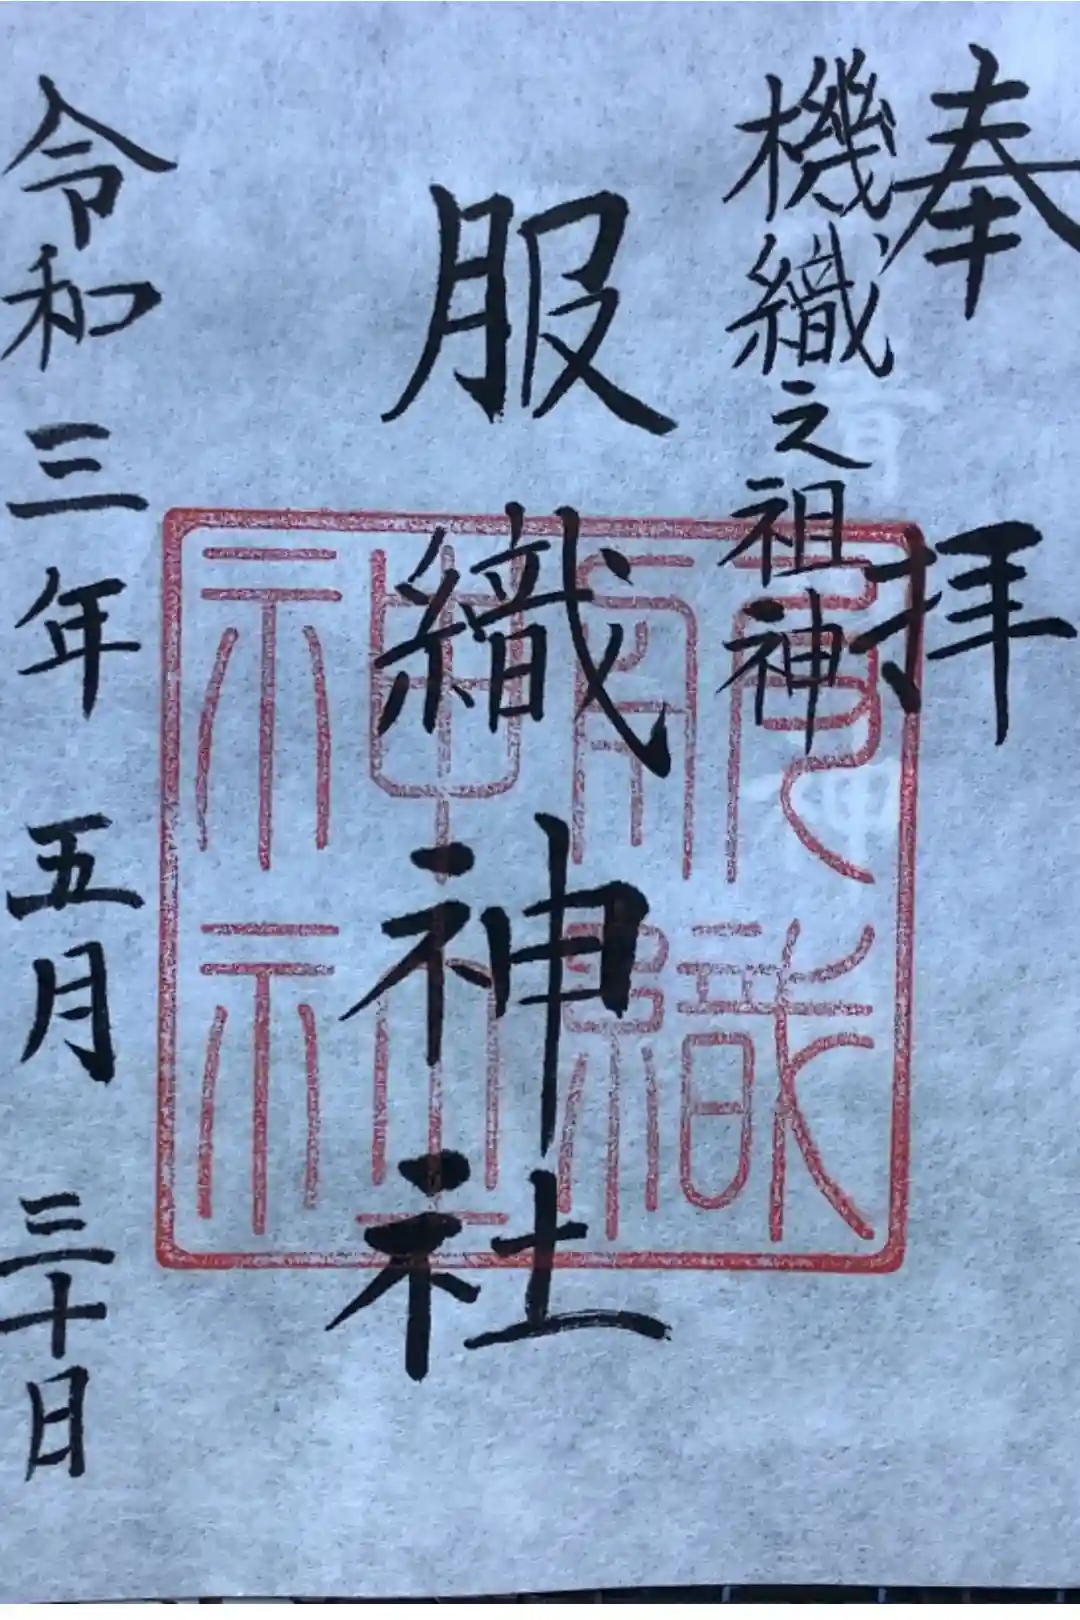 奉拝
機織之祖神
服織神社
令和三年五月三十日
服織
神社